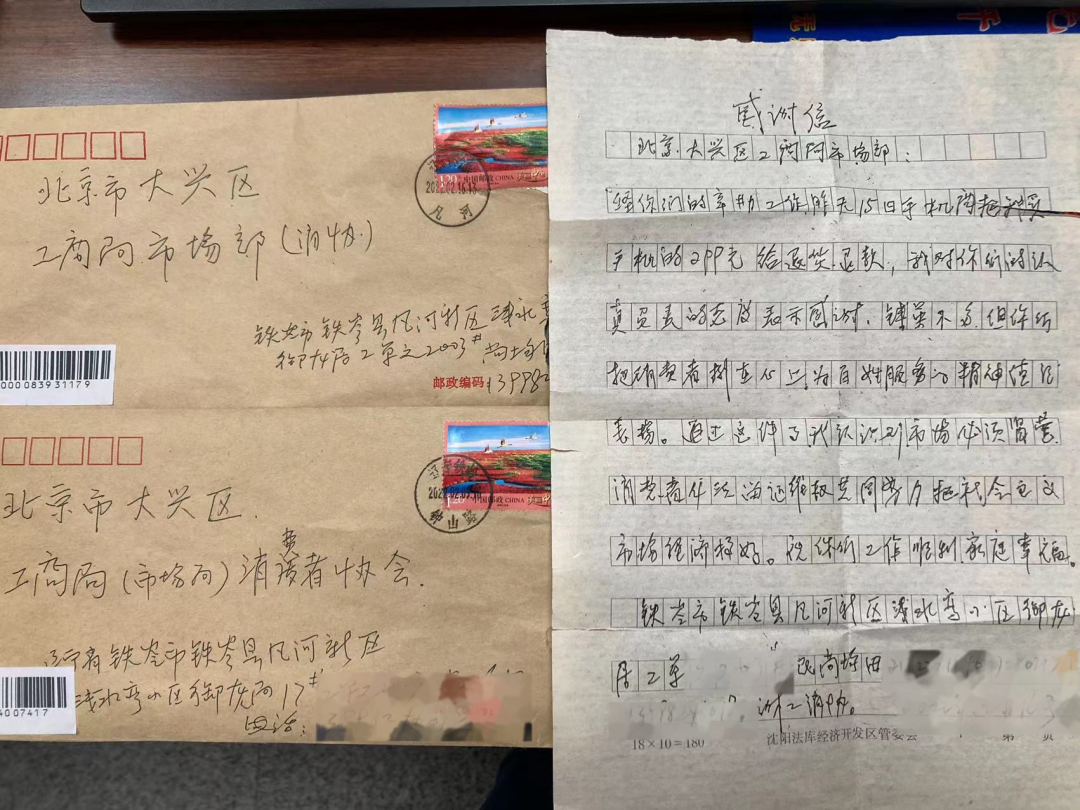 北京市大兴区
工商局市场部(消协)
铁岭市铁岭县凡河新区
御龙居
邮政编码
000083931179
中国邮政 CHINA
凡河
北京市大兴区.
工商局(市场局)消费者协会.
辽宁省铁岭市铁岭县凡河新区
浅水湾小区御龙居17#
电话:
4007417
中国邮政 CHINA
钟山路
感谢信
北京大兴区工商局市场部:
经你们的辛勤工作,昨天15日手机商把我买
手机的299元给退货退款,我对你们的认
真负责的态度表示感谢,钱虽不多,但你们
把消费者树在心上,为百姓服务的精神值得
表扬。通过这件事我认识到市场必须
消费者依法 维权共同努力把社会主义
市场经济搞好。祝你们工作顺利,家庭幸福。
铁岭市铁岭县凡河新区浅水湾小区御龙
居
消协。
18×10=180 沈阳法库经济开发区管委会 第 页